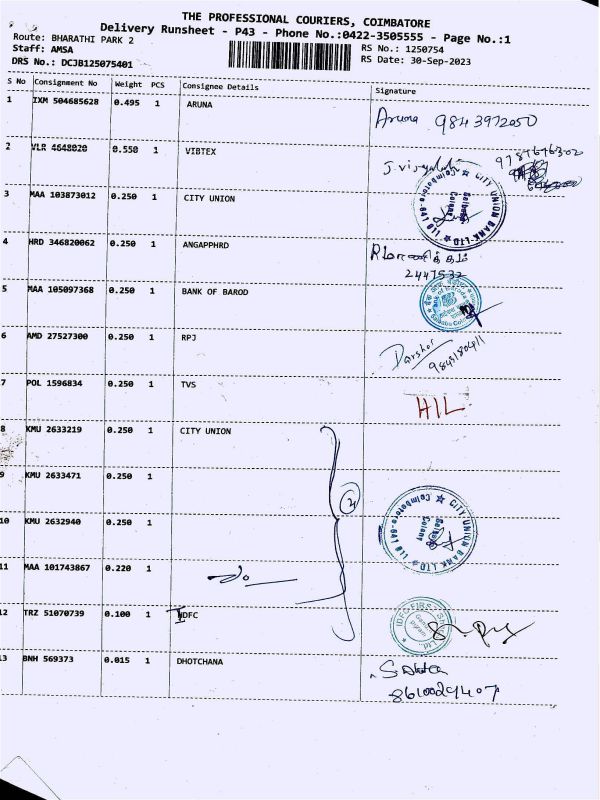 THE PROFESSIONAL COURIERS, COIMBATORE
Delivery Runsheet - P43 - Phone No.:0422-3505555 - Page No.:1
Route: BHARATHI PARK 2
Staff: AMSA
DRS No.: DCJB125075401
RS No.: 1250754
RS Date: 30-Sep-2023
S No Consignment No Weight PCS Consignee Details Signature
1 IXM 504685628 0.495 1 ARUNA Aruna 9843972050
2 VLR 4648020 0.550 1 VIBTEX
3 MAA 103873012 0.250 1 CITY UNION CITY UNION BANK LTD
4 HRD 346820062 0.250 1 ANGAPPHRD 2447532
5 MAA 105097368 0.250 1 BANK OF BAROD
6 AMD 27527300 0.250 1 RPJ
7 POL 1596834 0.250 1 TVS HIL
8 KMU 2633219 0.250 1 CITY UNION
9 KMU 2633471 0.250 1
10 KMU 2632940 0.250 1 CITY UNION BANK LTD
11 MAA 101743867 0.220 1
12 TRZ 51070739 0.100 1 IDFC IDFC FIRST
13 BNH 569373 0.015 1 DHOTCHANA
8610029407